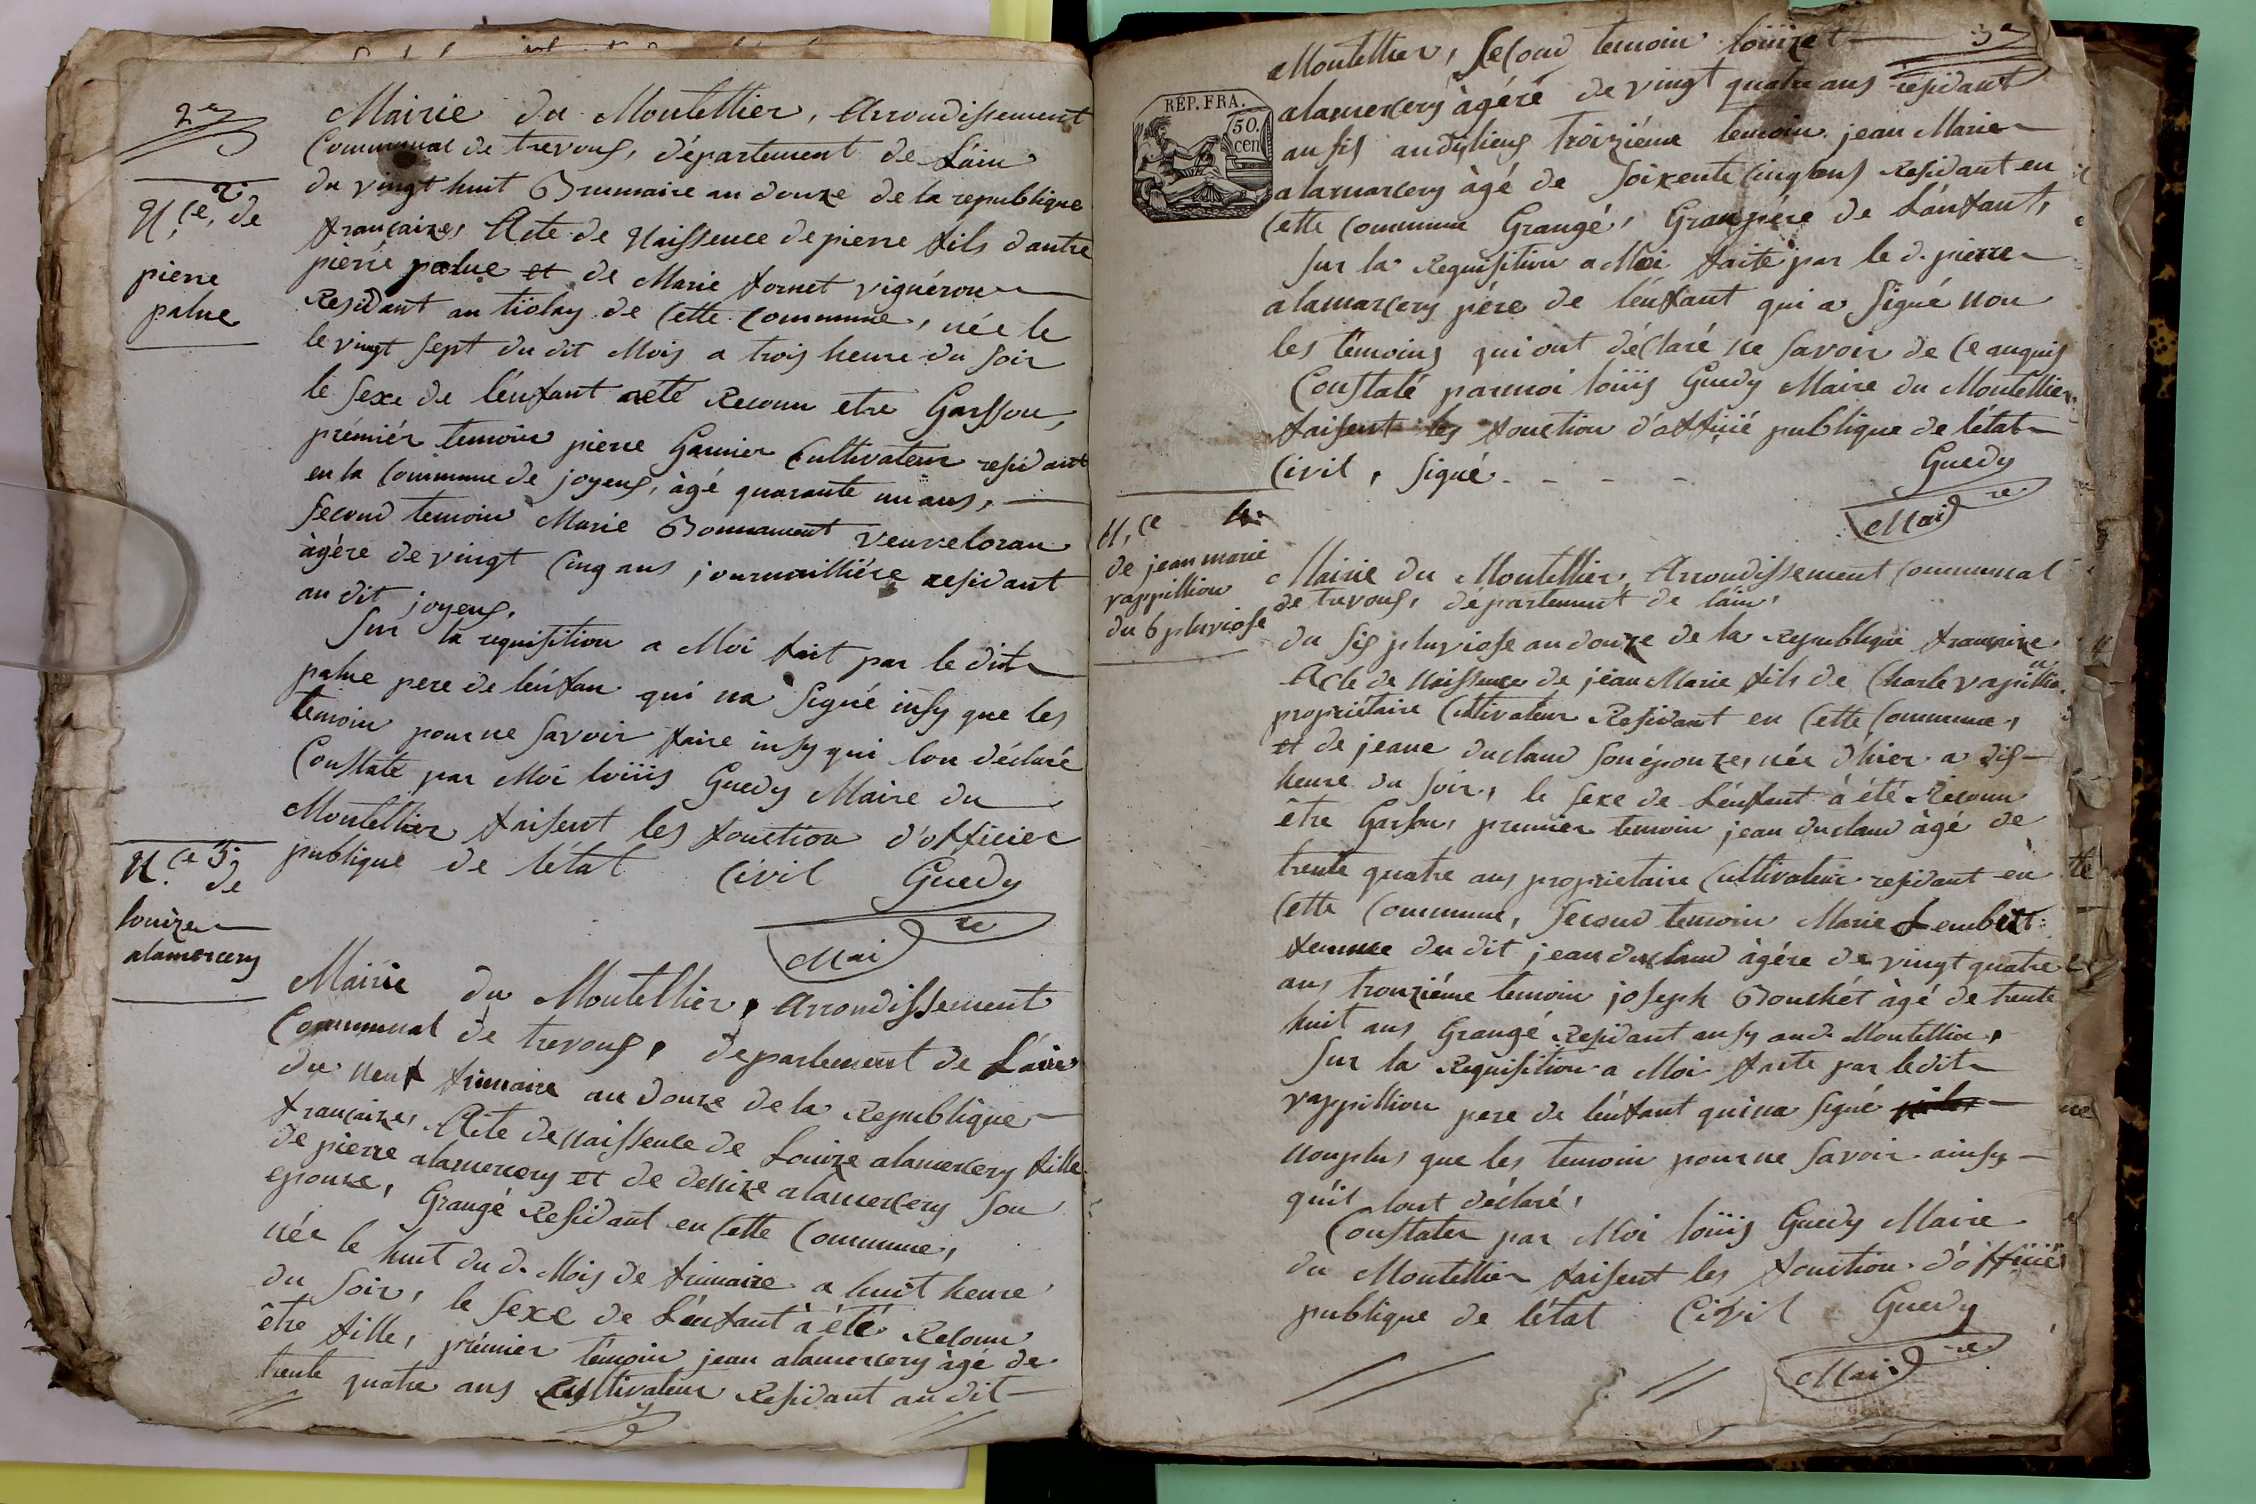 2e
Mairie du Montellier, Arrondissement
Communal de trevous, département de L'ain
du vingt huit Brumaire an douze de la republique
françaize, Acte de Naissence de pierre fils dautre
pierre palue et de Marie fornet vignéron
Residant au tiolay de Cette Commune, née le
le vingt sept du dit Mois a trois heure du soir
le sexe de l'énfant aeté Reconu etre Garsson,
prémiér temoin pierre Garnier Cultivateur residant
en la Commune de joyeus, àgé quarante un ans,
second temoin Marie Bonnament veuve loran
àgére de vingt Cinq ans journailliére residant
au dit joyeus,
Sur la requisition a Moi fait par le dit
palue pere de lénfan qui na signé insy que les
temoin pour ne savoir faire insy qui lon déclaré
Constate par Moi loüis Guedy Maire du
Montellier faisent les fonction d'officier
publique de létat Civil Guedy
Maire
N.ce 2. de
pierre
palue
N.ce 3. de
louize
alamercery
Mairie du Montelliér, Arrondissement
Communal de trevous, departement de L'ain
du neuf frimaire an douze de la Republique
françaize, Acte de naissence de Louize alamercery fille
de pierre alamercery et de denize alamercery son
epouze, Grangé Residant en Cette Commune,
née le huit du d. Mois de frimaire a huit heure
du soir, le sexe de L'énfant à été Reconu
être fille, prémier témoin jean alamercery àgé de
trente quatre ans Cultivateur Residant au dit
3e
Montellier, second temoin louize
alamercery àgéré de vingt quatre ans residant
RÉP. FRA.
50.
cen
ausy audy lieus troiziéme temoin jean Marie
alamarcery àgé de soixente Cinq ans Residant en
Cette Commune Grangé, Granpére de L'énfant,
Sur la Requisition a Moi faite par le d. pierre
alamarcery pére de l'énfant qui a signé non
les témoins qui ont déclaré ne savoir de Ce anquis
Constaté parmoi loüis Guedy Maire du Montellier
faisent les fonction d'óffiié publique de létat
Civil, signé - - - - Guedy
Maire
N.ce 4.
de jean marie
vappillion
du 6 pluviose
Mairie du Montellier, Arrondissement Communal
de trevous, département de lain,
du sis pluviose an douze de la Republique françaize
Acte de Naissence de jean Marie fils de Charle vapillion
propriétaire Cultivateur Residant en Cette Commune,
et de jeane duclaud son épouze, née d'hier a dis
heure du soir, le sexe de L'énfant à été Reconu
être Garson, premier temoin jean duclaud àgé de
trente quatre ans proprietaire Cultivateur residant en
Cette Commune, second temoin Marie Lembert
femme du dit jean duclaud àgére de vingt quatre
ans, trouziéme temoin joseph Bouchét àgé de trente
huit ans Grangé Residant ausy au d. Montellier,
Sur la Requisition a Moi faite par ledit
vappillion pere de lénfant qui na signé
nonplus que les temoin pour ne savoir ainsy
quil lont déclaré,
Constater par Moi loüis Guedy Maire
du Montellier faisent les fonction d'óffiiér
publique de létat Civil Guedy
Maire